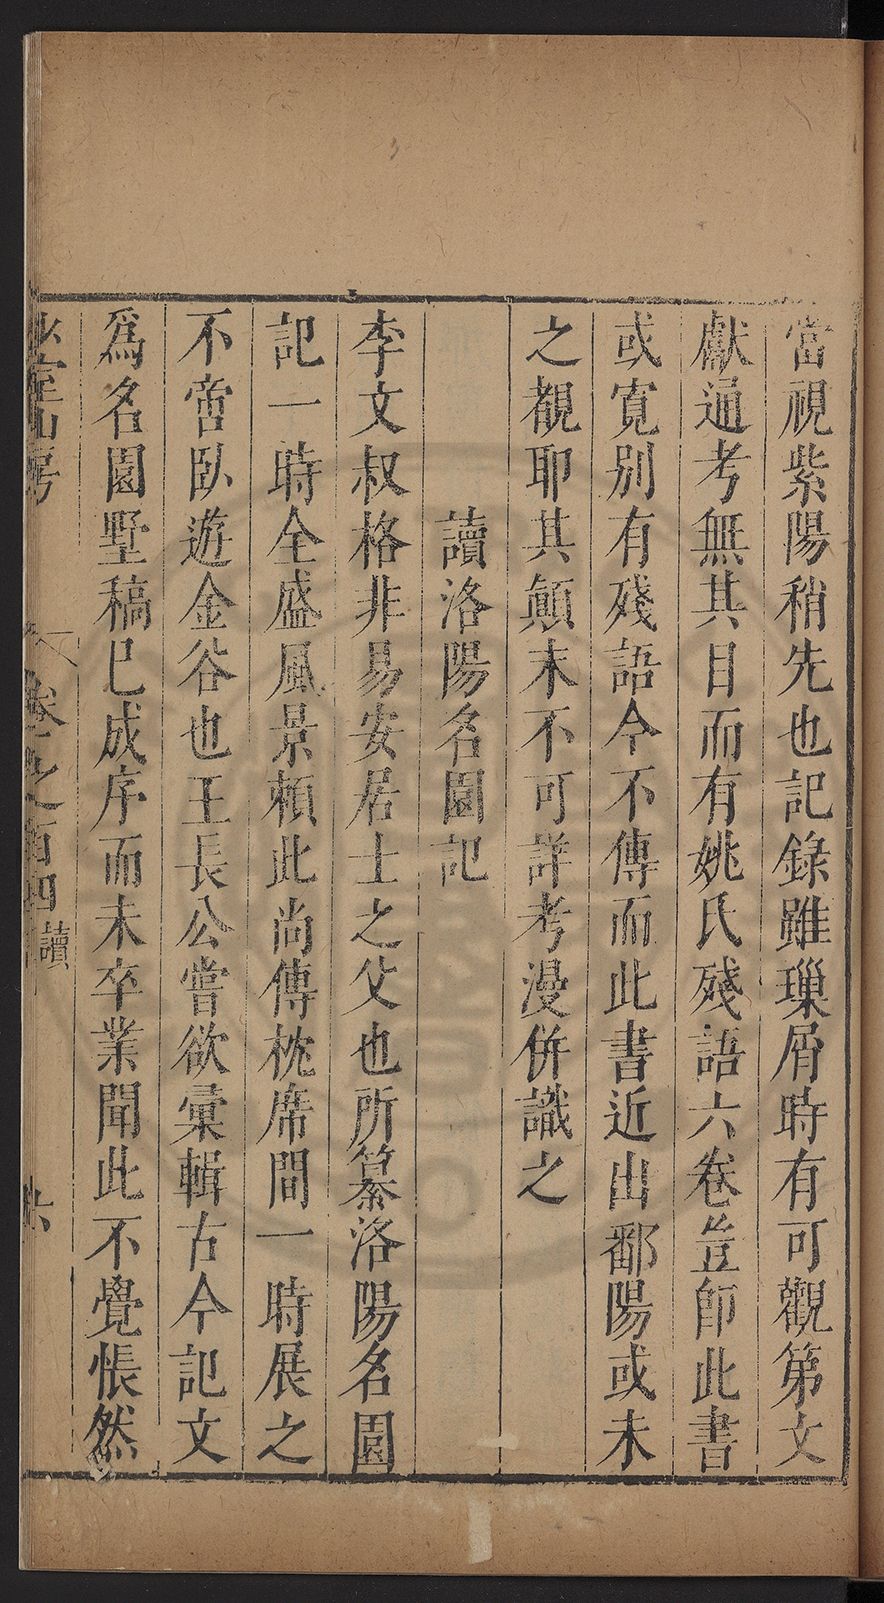 當視紫陽稍先也記錄雖璅屑時有可觀第文
獻通考無其目而有姚氏殘語六卷豈卽此書
或寬別有殘語今不傳而此書近出鄱陽或未
之覩耶其顛末不可詳考漫併識之
讀洛陽名園記
李文叔格非易安居士之父也所纂洛陽名園
記一時全盛風景頼此尚傳枕席間一時展之
不啻臥遊金谷也王長公嘗欲彚輯古今記文
爲名園墅稿已成序而未卒業聞此不覺悵然
山房
卷之百四 讀
六